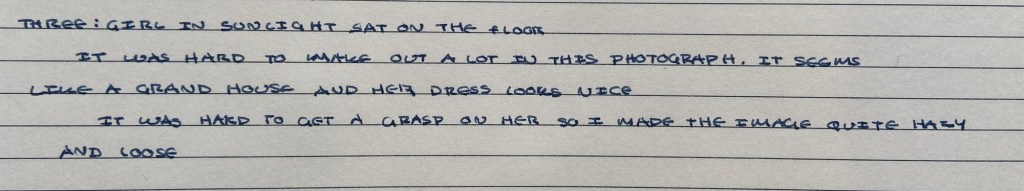 THREE: GIRL IN SUNLIGHT SAT ON THE FLOOR
IT WAS HARD TO MAKE OUT A LOT IN THIS PHOTOGRAPH. IT SEEMS
LIKE A GRAND HOUSE AND HER DRESS LOOKS NICE
IT WAS HARD TO GET A GRASP ON HER SO I MADE THE IMAGE QUITE HAZY
AND LOOSE